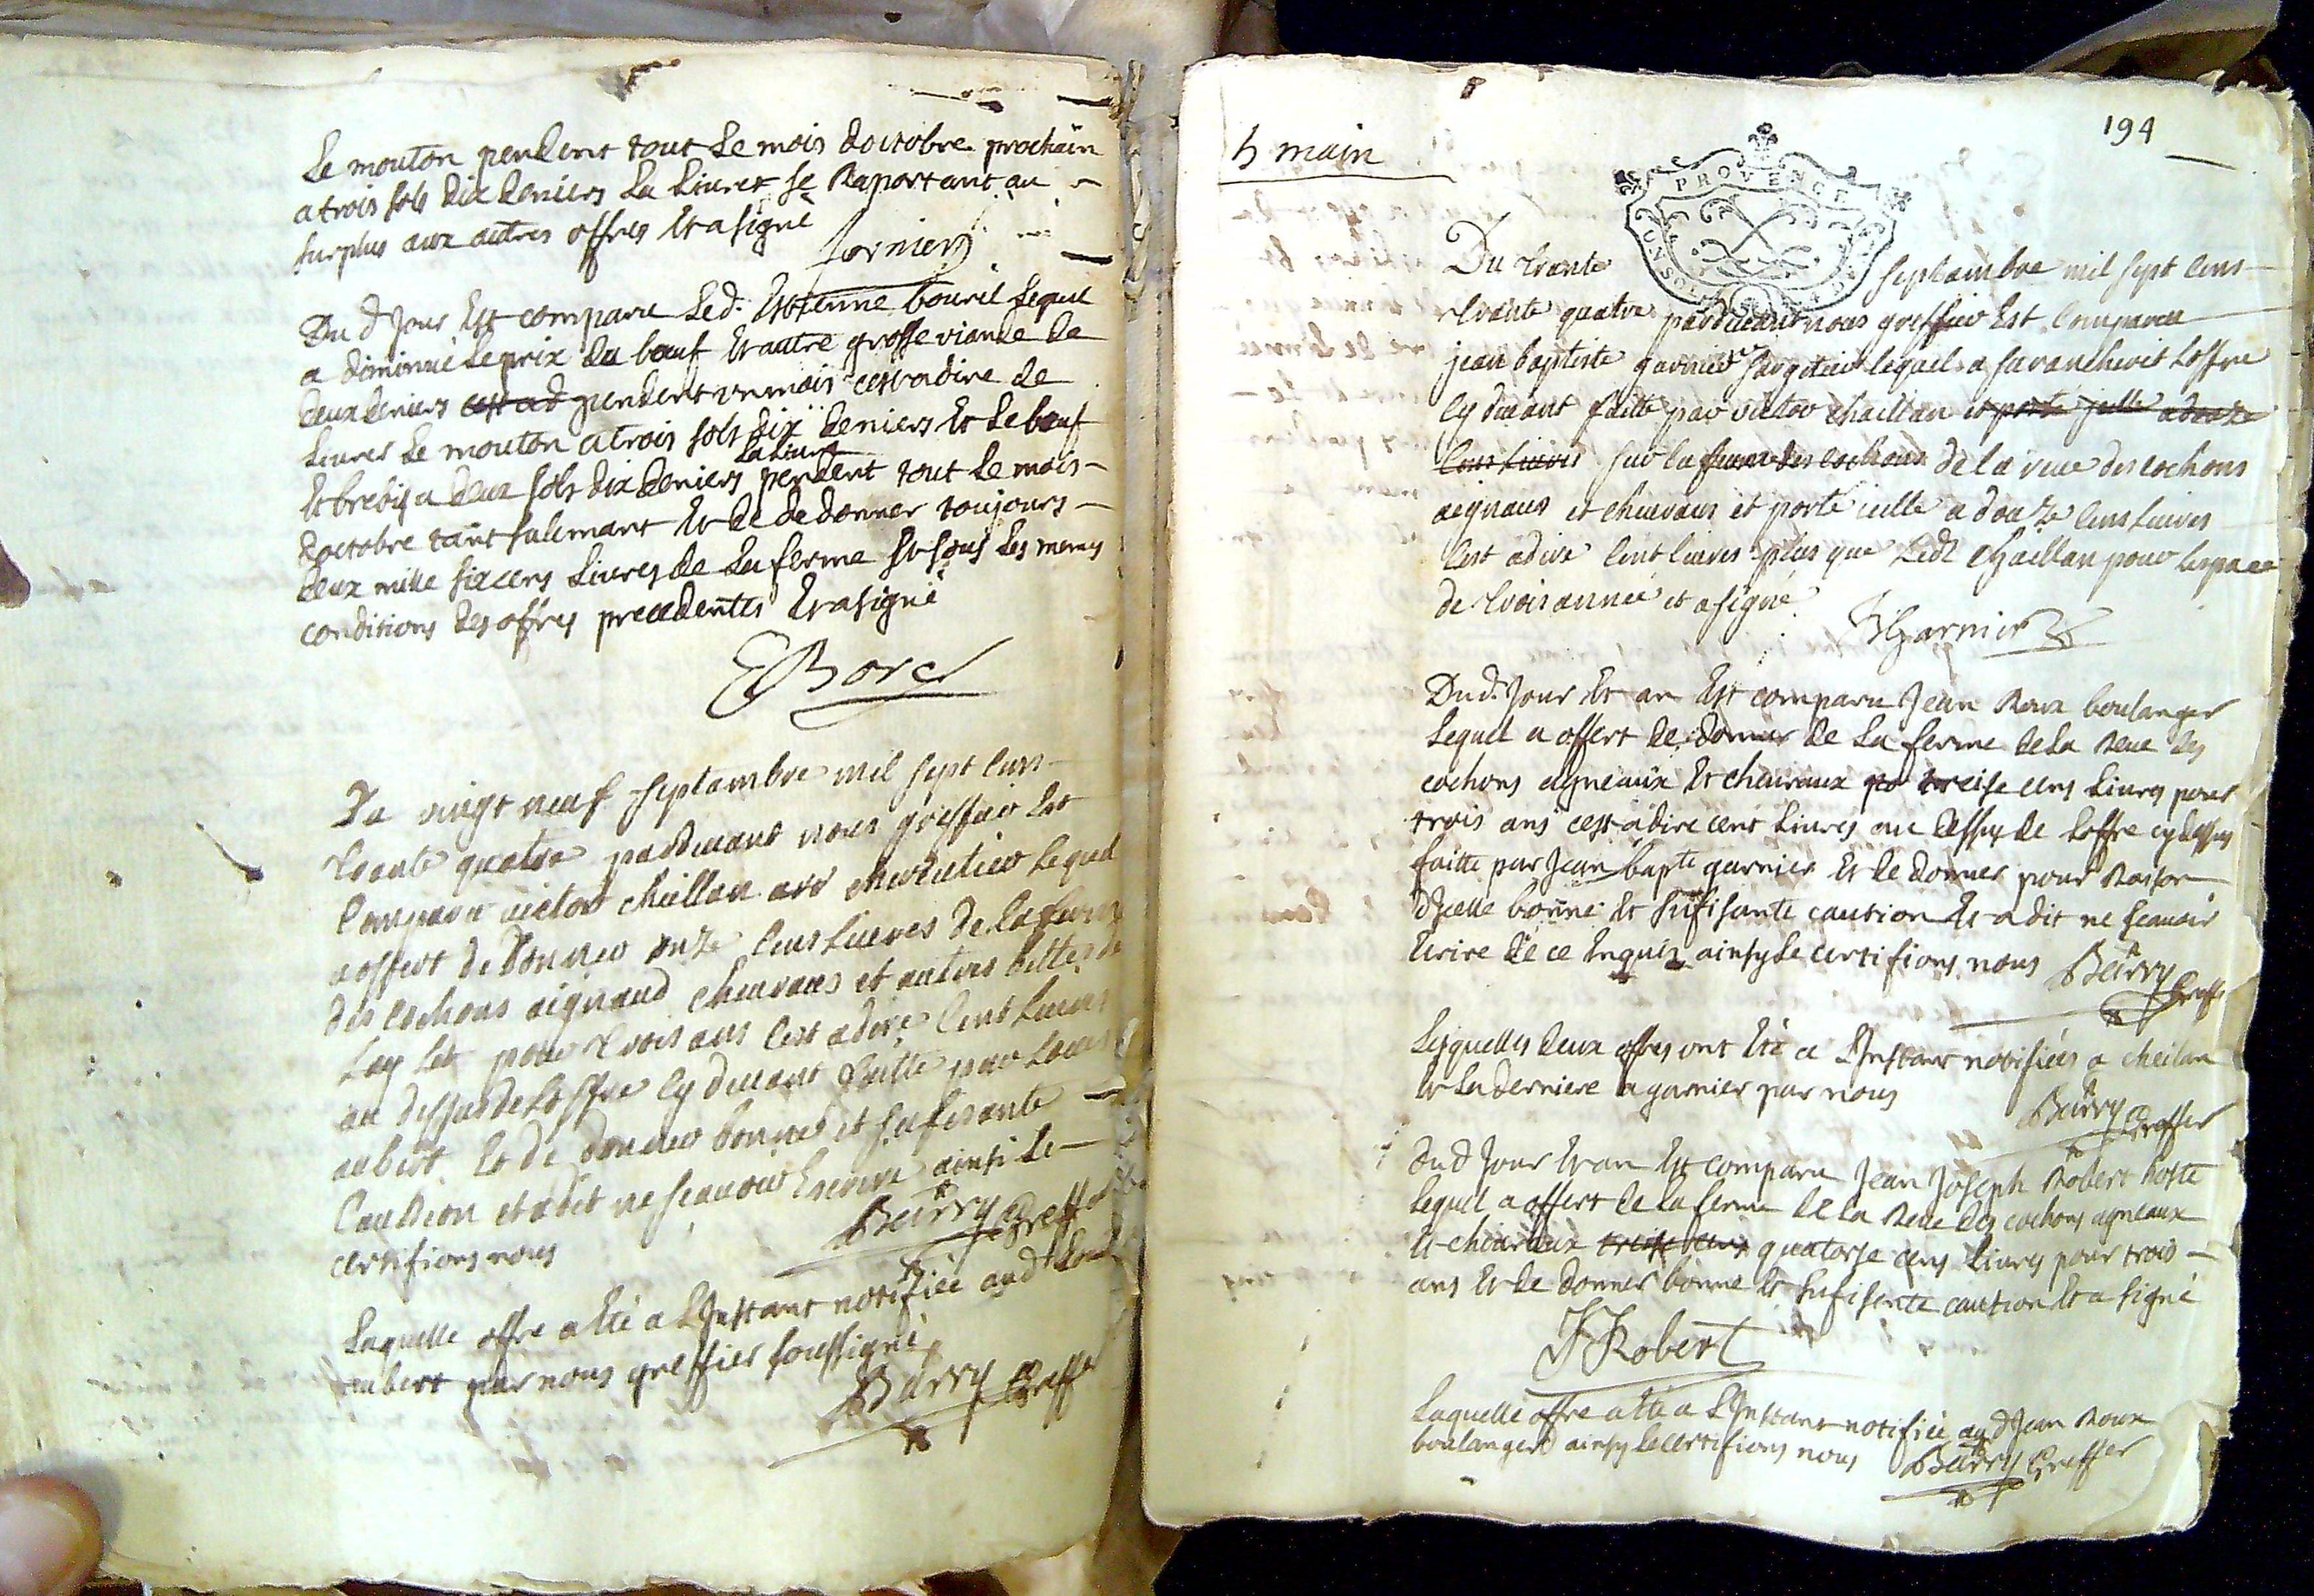 Le mouton pendent tout Le mois doctobre prochain
a trois sols dix deniers La Livre et se Raportant au
surplus aux autres offres Et a signé
fornier
Du d Jour Est comparu Led. Estienne bourel Lequel
a diminué Le prix du bœuf Et autre grosse viande de
deux deniers cest ad pendent un mois cest adire de
Livrer Le mouton a trois sols dix deniers Et Le bœuf
La Livre
Et brebis a deux sols dix deniers pendent tout Le mois
doctobre tant sulemant Et de de donner toujours
deux mille six cens Livres de La ferme Et sous Les memes
conditions des offres precedentes Et a signé
EBorel
Du vingt neuf septambre mil sept cens
trante quatre pardevant nous greffier Est
comparu victor chaillan chercutier Lequel
a offert de donner onze cens Livres de La ferme
des cochons aignaud chevraus et autres bettes de
Lay Let pour trois ans cest adire cent Livres
au dessus de Loffre cy devant faitte par Louis
aubert Et de donner bonne et sufisante
caution et a dit ne scavoir Escrire ainsi Le
certifions nous
Barry Greffier
Laquelle offre a été a L'Instant notifiée aud Louis
aubert par nous greffier soussigné
Barry Greffier
194
h main
PROVENCE
Du trante septambre mil sept cens
trante quatre pardevant nous greffier Est comparu
jean baptiste garnier lequel a farancherit Loffre
cy devant faitte par victor chaillan et porté jcelle a douze
cens Livres sur la ferme des cochons de la reve des cochons
aignaus et chevraus et porté icelle a douze cens Livres
cest adire cent livres plus que Ledt chaillan pour Lespace
de trois année et a signé
JBGarnier
Dud. Jour Et an Est comparu Jean Roux boulanger
Lequel a offert de donner de La ferme de La Reve des
cochons agneaux Et chevraux po treise cens Livres pour
trois ans cest adire cent Livres au dessus de Loffre cy dessus
faitte par Jean bapte garnier Et de donner pour Raison
dJcelle bonne Et sufisante caution Et a dit ne scavoir
Ecrire de ce Enquis ainsy Le certifions nous Barry
Greffier
Lesquelles deux offres ont été a L'Instant notifiées a cheilan
Et La derniere a garnier par nous
Barry Greffier
Dud Jour Et an Est comparu Jean Joseph Robert hoste
Lequel a offert de La ferme de La Reve des cochons agneaux
Et chevraux treise cens quatorse cens Livres pour trois
ans Et de donner bonne Et sufisente caution Et a signé
JJRobert
Laquelle offre a été a L'Instant notifiée aud Jean Roux
boulanger ainsy Le certifions nous Barry Greffier